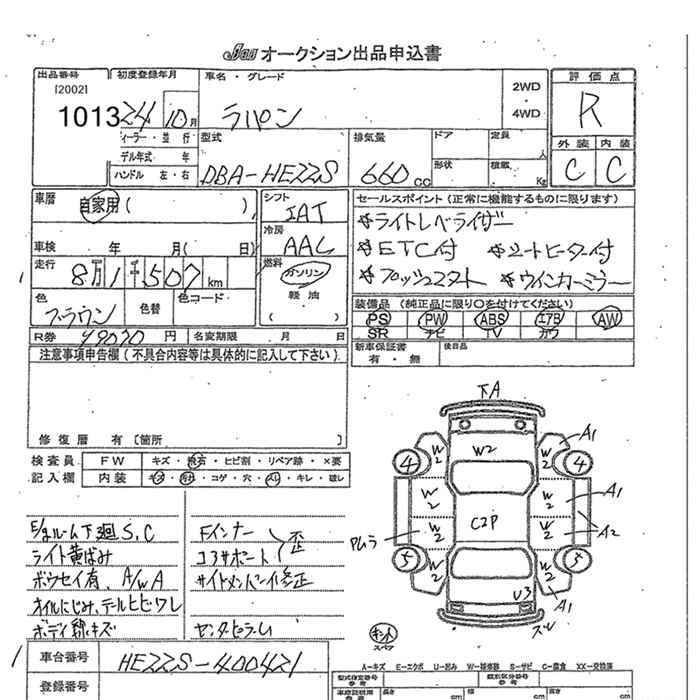 Jan オークション出品申込書
出品番号 初度登録年月 車名・グレード 評価点
[2002] 2WD
1013 24 10月 ラパン ・ R
4WD
ィーラー・並行 型式 排気量 ドア 定員 外装 内装
デル年式 年 人
ハンドル 左・右 DBA-HE22S 660cc 形状 積載 Kg C C
車暦 自家用( ) シフト セールスポイント(正常に機能するものに限ります)
IAT ☆ライトレベライザー
冷房 ☆ETC付 ☆シートヒーター付
車検 年 月( 日) AAC ☆プッシュスタート ☆ウインカーミラー
走行 8万1千507km 燃料
ガソリン
軽油
( )
色 ブラウン 色替 色コード 装備品(純正品に限り○を付けてください)
PS PW ABS エアB AW
R券 円 名変期限 月 日 SR ナビ TV カワ
注意事項申告欄(不具合内容等は具体的に記入して下さい) 新車保証書 後日品
有・無
修復暦 有〔箇所 〕
検査員 FW キズ・飛石・ヒビ割・リペア跡・×要
記入欄 内装 キズ・汚れ・コゲ・穴・スレ・キレ・破レ
下A
W2 A1
4 W2 W2 4
W2 W2 A1
C2P
PLラ W2 W2 A2
5 W2 W2 5
U3 A1
S,C Fインナー
ライト黄ばみ コアサポート 歪
ボウセイ有、A/W A サイドメンバーイ修正
オイルにじみ、テールヒビワレ
ボディ線キズ センターピラーレ
スペア
車台番号 HE22S-400421
登録番号
A-キズ E-エクボ U-凹み W-補修跡 S-サビ C-腐食 XX-交換済
型式指定番号 類別区分番号
参考 参考
長さ cm 幅 cm 高さ cm